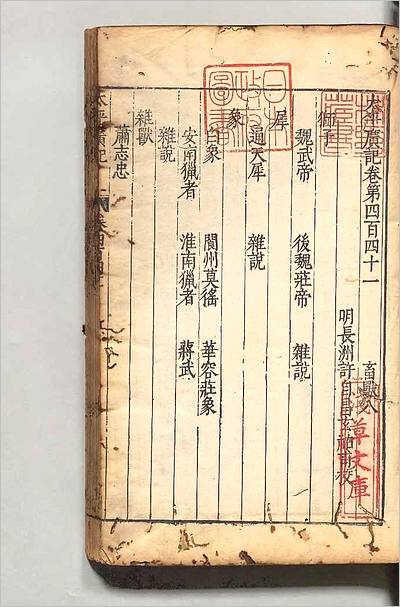 太平廣記卷第四百四十一
畜獸八
明長洲許自昌玄祐甫校
獅子
魏武帝 後魏莊帝 雜說
犀
通天犀 雜說
象
白象 閬州莫徭 華容莊象
安南獵者 淮南獵者 蔣武
雜說
雜獸
蕭志忠
草文庫